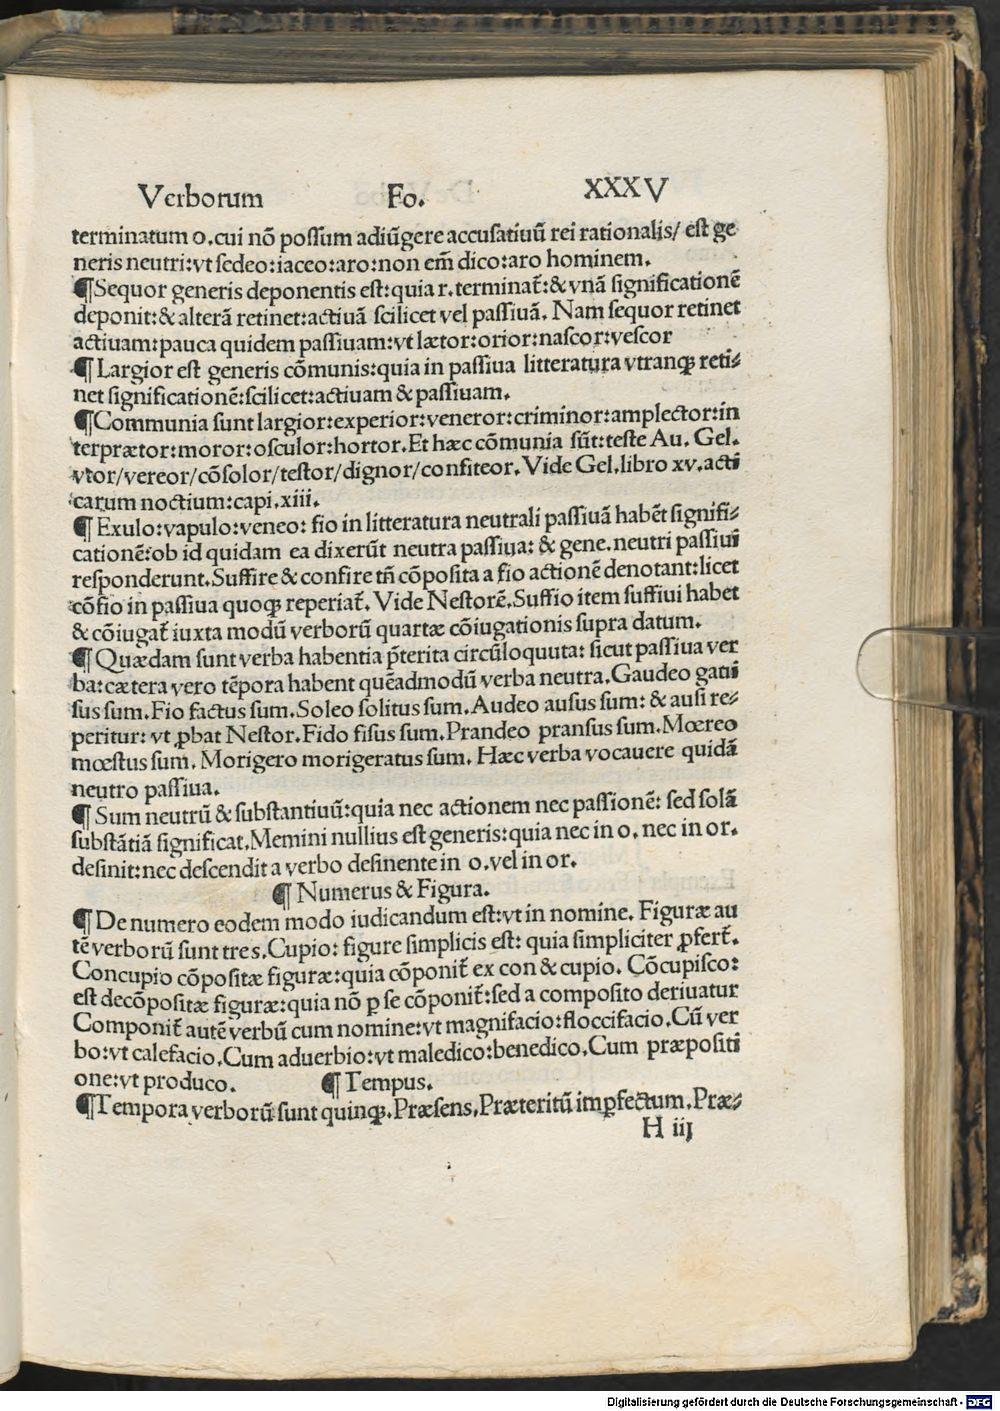 Verborum Fo. XXXV
terminatum o.cui nō poſſum adiūgere accuſatiuū rei rationalis/ eſt ge
neris neutri:vt ſedeo:iaceo:aro:non em̄ dico:aro hominem.
¶Sequor generis deponentis eſt:quia r.terminat̄:& vnā ſignificationē
deponit:& alterā retinet:actiuā ſcilicet vel paſſiuā. Nam ſequor retinet
actiuam:pauca quidem paſſiuam:vt lætor:orior:naſcor:veſcor
¶ Largior eſt generis cōmunis:quia in paſſiua litteratura vtranqꝫ reti⸗
net ſignificationē:ſcilicet:actiuam & paſſiuam.
¶Communia ſunt largior:experior:veneror:criminor:amplector:in
terprætor:moror:oſculor:hortor.Et hæc cōmunia ſūt:teſte Au. Gel.
vtor/vereor/cōſolor/teſtor/dignor/confiteor.Vide Gel.libro xv.acti
carum noctium:capi.xiii.
¶ Exulo:vapulo:veneo: fio in litteratura neutrali paſſiuā habēt ſignifi⸗
cationē:ob id quidam ea dixerūt neutra paſſiua: & gene.neutri paſſiui
reſponderunt.Suffire & confire tn̄ cōpoſita a fio actionē denotant:licet
cōfio in paſſiua quoqꝫ reperiat̄. Vide Neſtorē.Suffio item ſuffiui habet
& cōiugat̄ iuxta modū verborū quartæ cōiugationis ſupra datum.
¶ Quædam ſunt verba habentia p̄terita circūloquuta: ſicut paſſiua ver
ba:cætera vero tēpora habent quēadmodū verba neutra.Gaudeo gaui
ſus ſum.Fio factus ſum.Soleo ſolitus ſum.Audeo auſus ſum: & auſi re⸗
peritur: vt ꝓbat Neſtor.Fido fiſus ſum.Prandeo pranſus ſum.Mœreo
mœſtus ſum. Morigero morigeratus ſum. Hæc verba vocauere quidā
neutro paſſiua.
¶ Sum neutrū & ſubſtantiuū:quia nec actionem nec paſſionē: ſed ſolā
ſubſtātiā ſignificat.Memini nullius eſt generis:quia nec in o. nec in or.
deſinit:nec deſcendit a verbo deſinente in o.vel in or.
¶ Numerus & Figura.
¶ De numero eodem modo iudicandum eſt:vt in nomine. Figuræ au
tē verborū ſunt tres.Cupio: figure ſimplicis eſt: quia ſimpliciter ꝓfert̄.
Concupio cōpoſitæ figuræ:quia cōponit̄ ex con & cupio. Cōcupiſco:
eſt decōpoſitæ figuræ:quia nō ꝑ ſe cōponit̄:ſed a compoſito deriuatur
Componit̄ autē verbū cum nomine:vt magnifacio:floccifacio.Cū ver
bo:vt calefacio.Cum aduerbio:vt maledico:benedico.Cum præpoſiti
one:vt produco. ¶ Tempus.
¶Tempora verborū ſunt quinqꝫ.Præſens,Præteritū imꝑfectum.Præ⸗
H iij
Digitalisierung gefördert durch die Deutsche Forschungsgemeinschaft - DFG